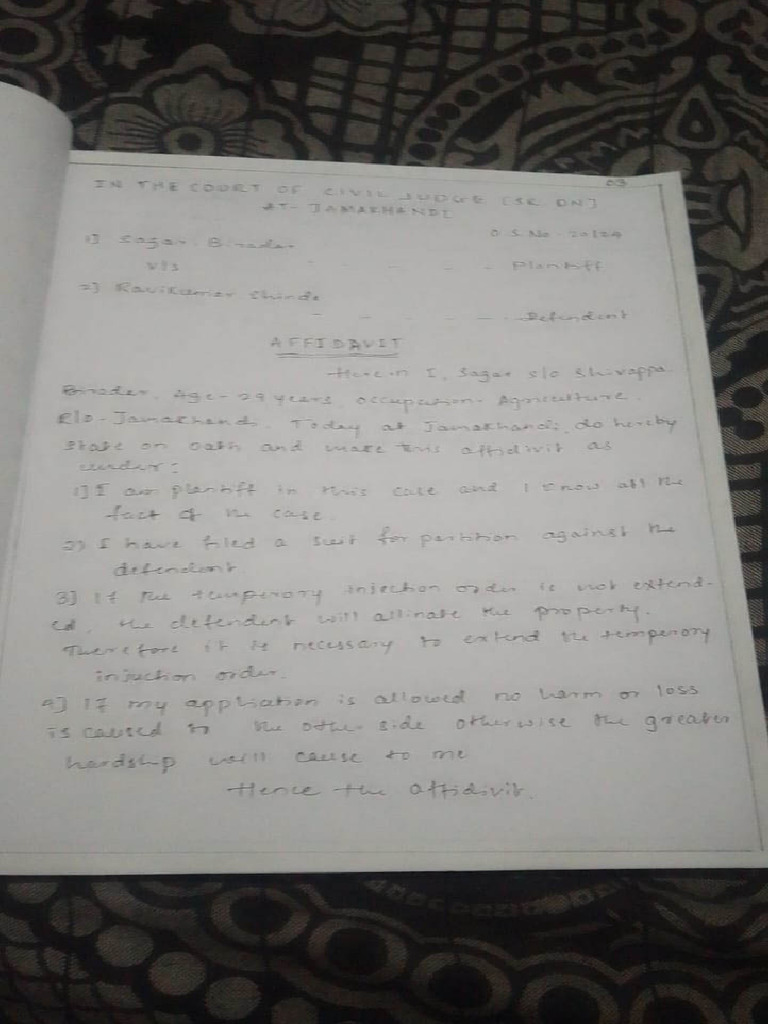 03
IN THE COURT OF CIVIL JUDGE [SR DN]
AT- JAMAKHANDI
O.S.No. 20/24
1) Sagar. Birader
V/S - - - - Plantiff
2) Ravikumar Shinde
- - - - - Defendent
AFFIDAVIT
Here in I, Sagar s/o Shivappa
Birader. Age - 29 years, occupation - Agriculture,
R/o - Jamakhandi. Today at Jamakhandi, do hereby
state on oath and make this affidivit as
under:
1] I am plantiff in this case and I know all the
fact of the case.
2) I have filed a suit for partition against the
defendent.
3] If the temperory injection order is not extend-
ed, the defendent will allinate the property.
Therefore it is necessary to extend the temperory
injuction order.
4] If my appliation is allowed no harm or loss
is caused to the other side otherwise the greater
hardship will cause to me
Hence the affidivit.